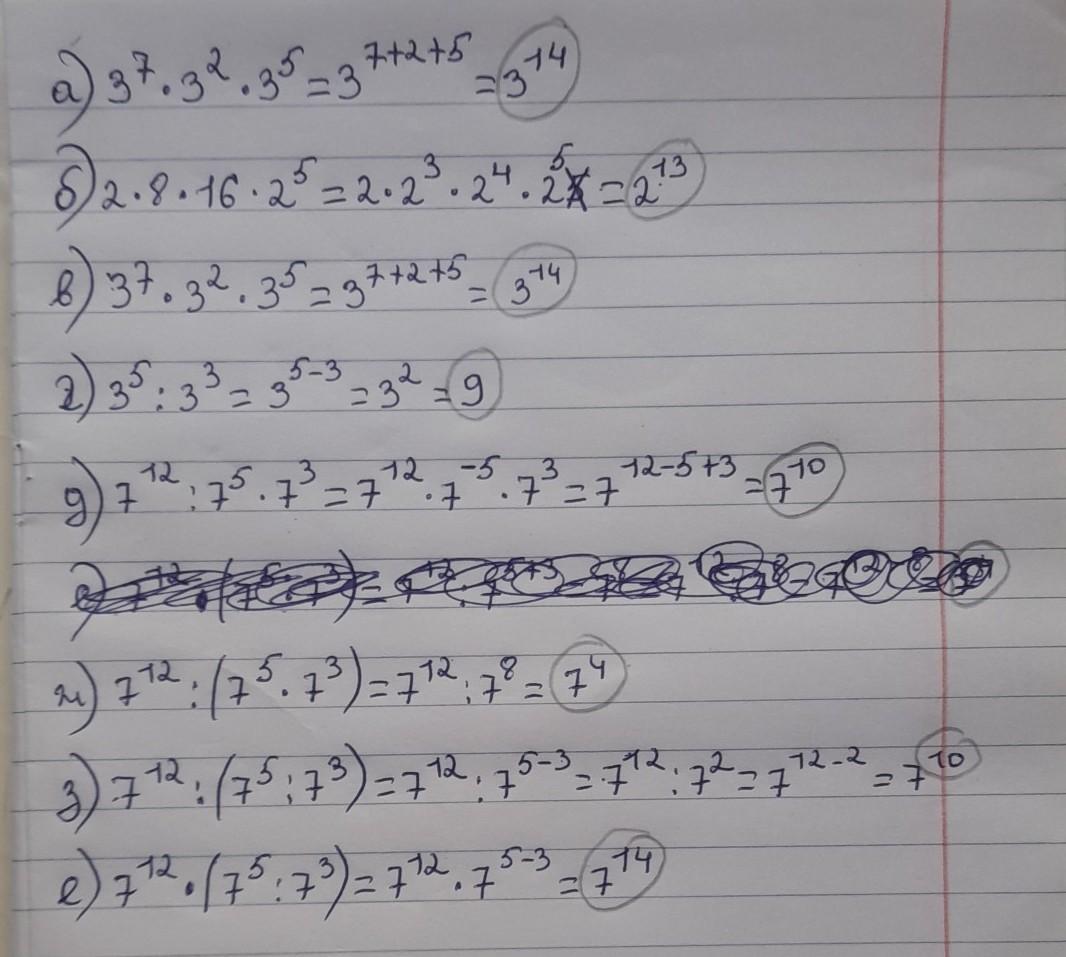 а) 3⁷ · 3² · 3⁵ = 3⁷⁺²⁺⁵ = 3¹⁴
б) 2 · 8 · 16 · 2⁵ = 2 · 2³ · 2⁴ · 2⁵ = 2¹³
в) 3⁷ · 3² · 3⁵ = 3⁷⁺²⁺⁵ = 3¹⁴
г) 3⁵ : 3³ = 3⁵⁻³ = 3² = 9
д) 7¹² : 7⁵ · 7³ = 7¹² · 7⁻⁵ · 7³ = 7¹²⁻⁵⁺³ = 7¹⁰
ж) 7¹² : (7⁵ · 7³) = 7¹² : 7⁸ = 7⁴
з) 7¹² : (7⁵ : 7³) = 7¹² : 7⁵⁻³ = 7¹² : 7² = 7¹²⁻² = 7¹⁰
е) 7¹² · (7⁵ : 7³) = 7¹² · 7⁵⁻³ = 7¹⁴